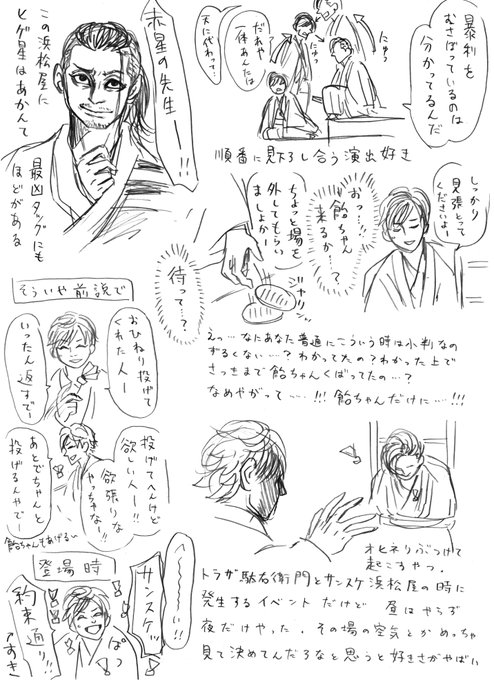 暴利を
むさぼっているのは
分かってるんだ
にゅっ
にゅっ
だれや
一体あんたは
天に代わって…
順番に見下ろし合う演出好き
赤星の先生ー!!
この浜松屋に
ヒゲ星はあかんて
最凶タッグにも
ほどがある
しっかり
見張っとって
くださいよ、
おっ…!!
飴ちゃん
来るか…?て
ちょっと場を
外してもらい
ましょかー
ジャリン
待って…?
えっ…なにあなた普通にこういう時は小判なの
ずるくない…?わかってたの?わかった上で
さっきまで飴ちゃんくばってたの…?
なめやがって…!!!飴ちゃんだけに…!!!
そういや前説で
おひねり投げて
くれた人ー
いったん返すでー
投げてへんけど
欲しい人ー!!
欲張りな
やっちゃなー!!
あとでちゃんと
投げるんやでー
飴ちゃんもあげるい
登場時
へ〜〜〜い!!
サンスケッ
約束通り!!
ぱっ
↑すき
オヒネリぶつけて
起こすやつ.
トラザ駄右衛門とサンスケ浜松屋の時に
発生するイベントだけど 昼はやらず
夜だけやった.その場の空気とかめっちゃ
見て決めてんだろなと思うと好きさがやばい